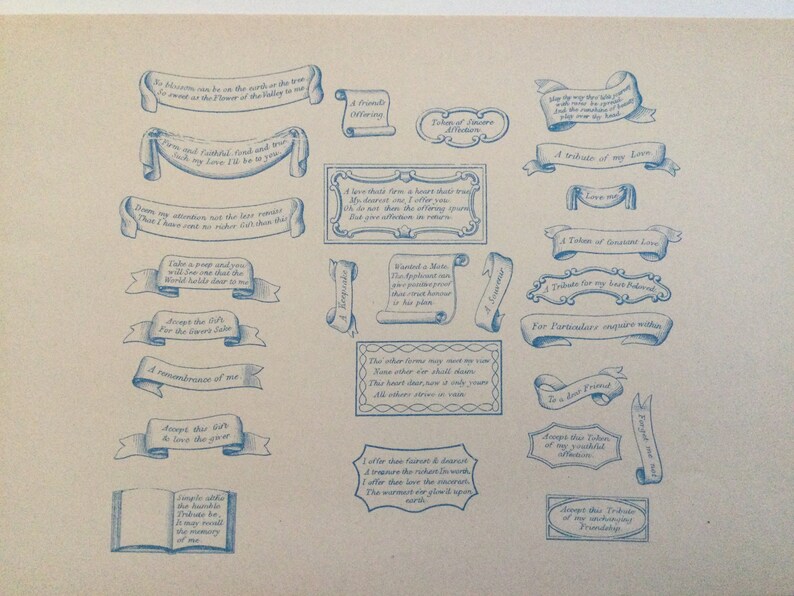 No blossom can be on the earth or the tree
So sweet as the Flower of the Valley to me
Firm and faithful, fond and true
Such my Love I'll be to you.
Deem my attention not the less remiss
That I have sent no richer Gift than this
Take a peep and you
will See one that the
World holds dear to me
Accept the Gift
For the Giver's Sake
A remembrance of me.
Accept this Gift
& love the giver
Simple altho'
the humble
Tribute be,
It may recall
the memory
of me.
A friend's
Offering.
Token of Sincere
Affection
A love that's firm a heart that's true
My dearest one, I offer you
Oh do not then the offering spurn
But give affection in return.
A Keepsake
Wanted a Mate.
The Applicant can
give positive proof
that strict honour
is his plan.
A Souvenir
Tho' other forms may meet my view
None other e'er shall claim
This heart dear, now it only yours
All others strive in vain
I offer thee fairest & dearest
A treasure the richest I'm worth,
I offer thee love the sincerest,
The warmest e'er glow'd upon
earth.
May the way thro' life's journey
with roses be spread
And the sunshine of beauty
play over thy head.
A tribute of my Love
Love me
A Token of Constant Love
A Tribute for my best Beloved
For Particulars enquire within
To a dear Friend
Forget me not
Accept this Token
of my youthful
affection.
Accept this Tribute
of my unchanging
Friendship